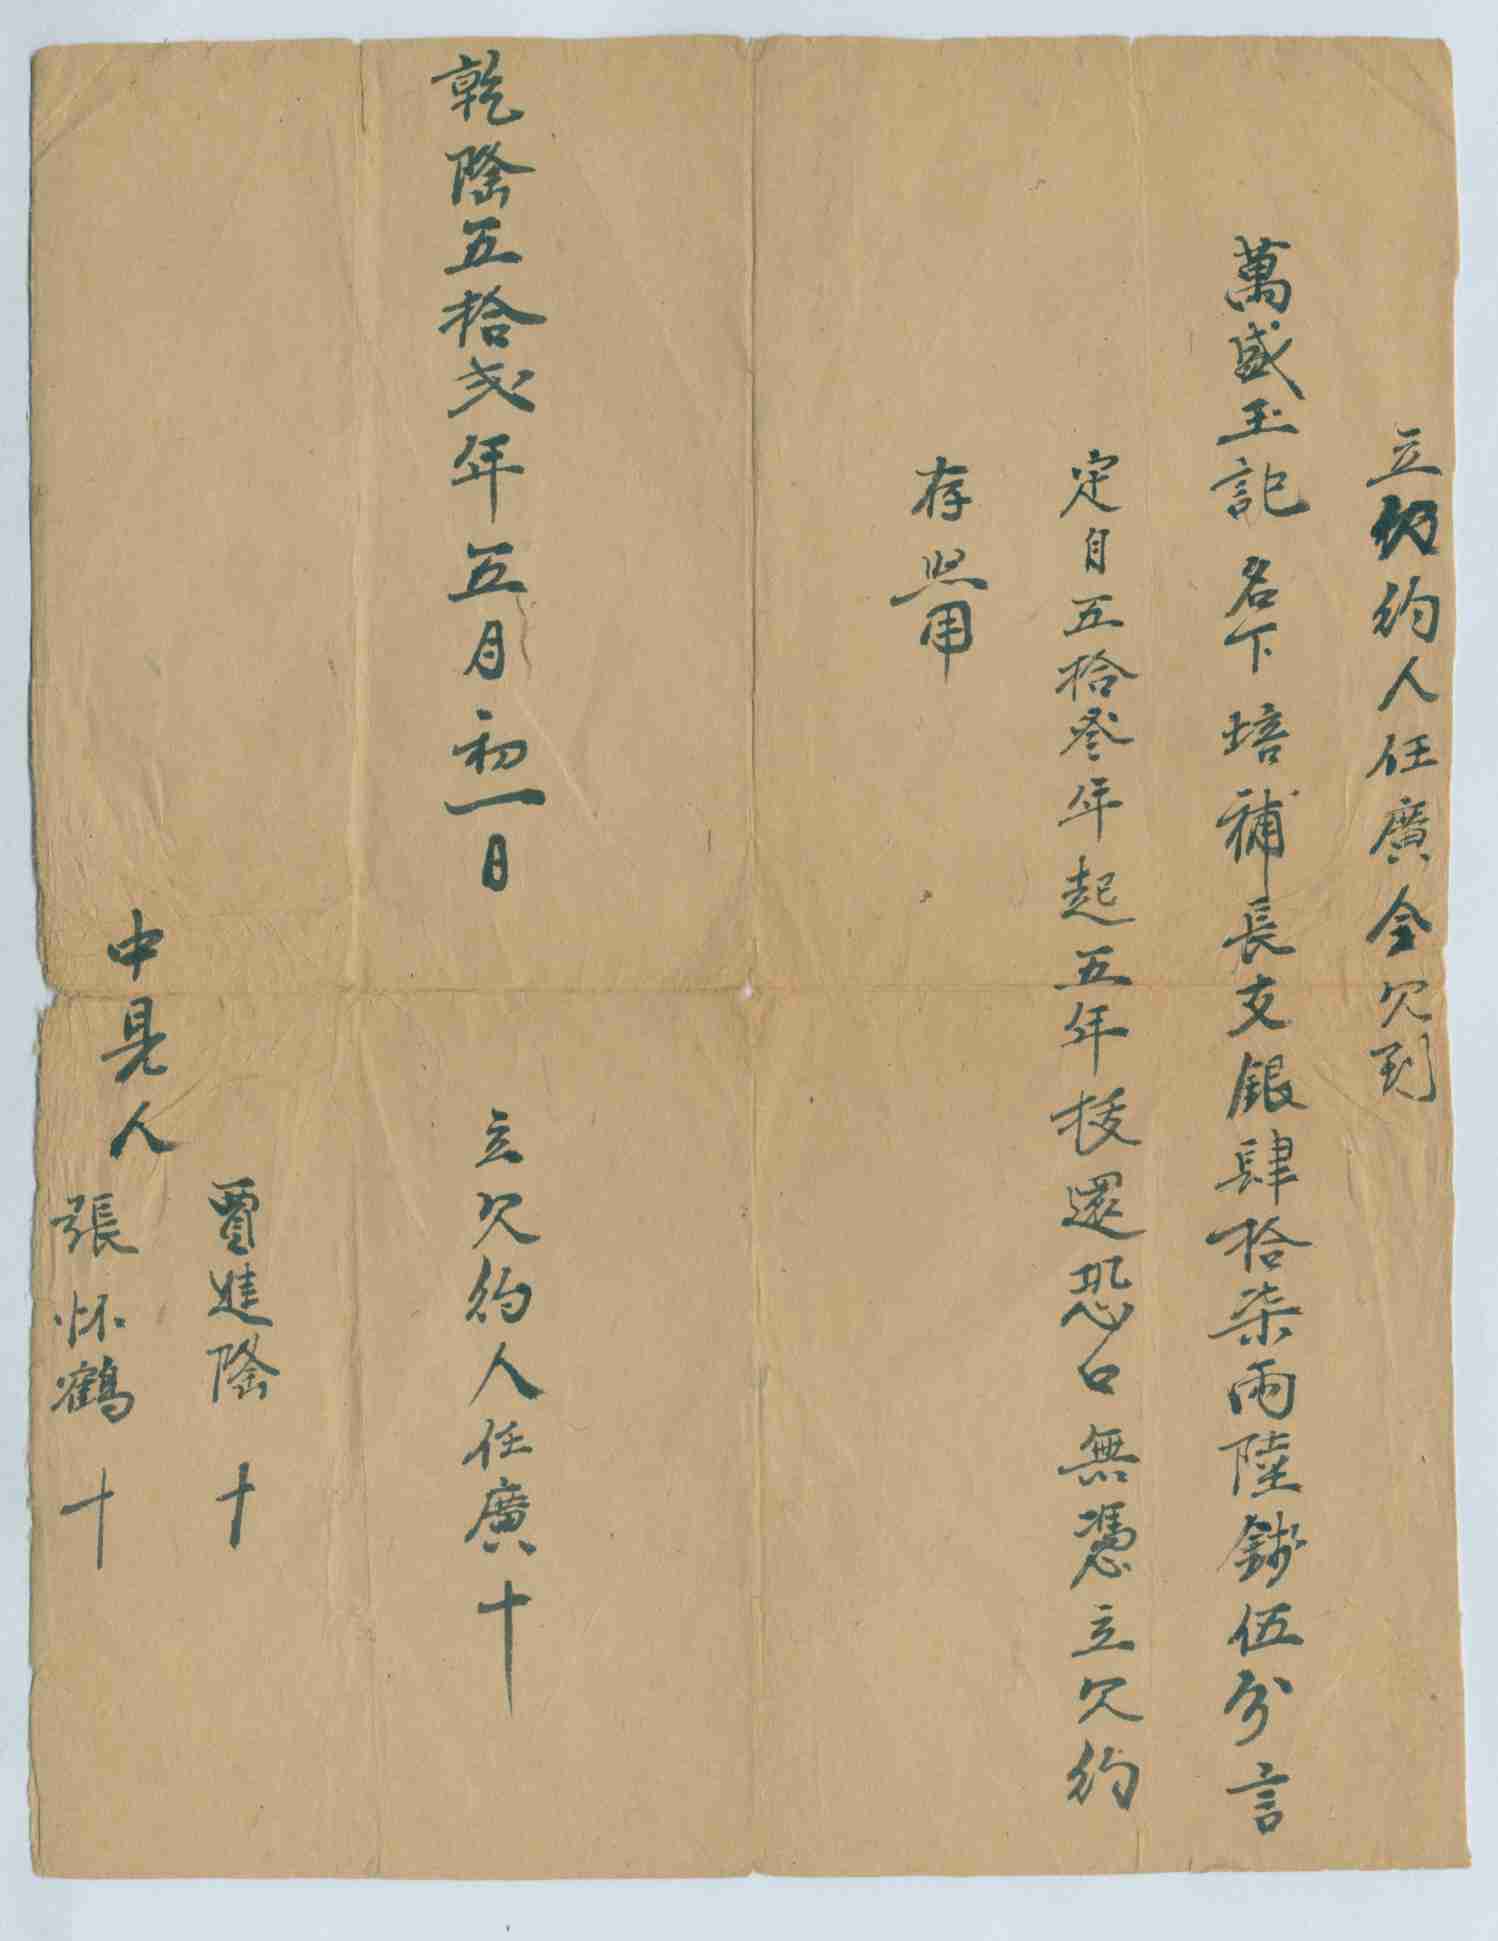 立約人任廣全欠到
萬盛玉記名下培補長支銀肆拾柒兩陸錢伍分言
定自五拾叁年起五年拔還恐口無憑立欠約
存照用
乾隆五拾弍年五月初一日
立欠約人任廣十
中見人
賈進隆十
張怀鶴十